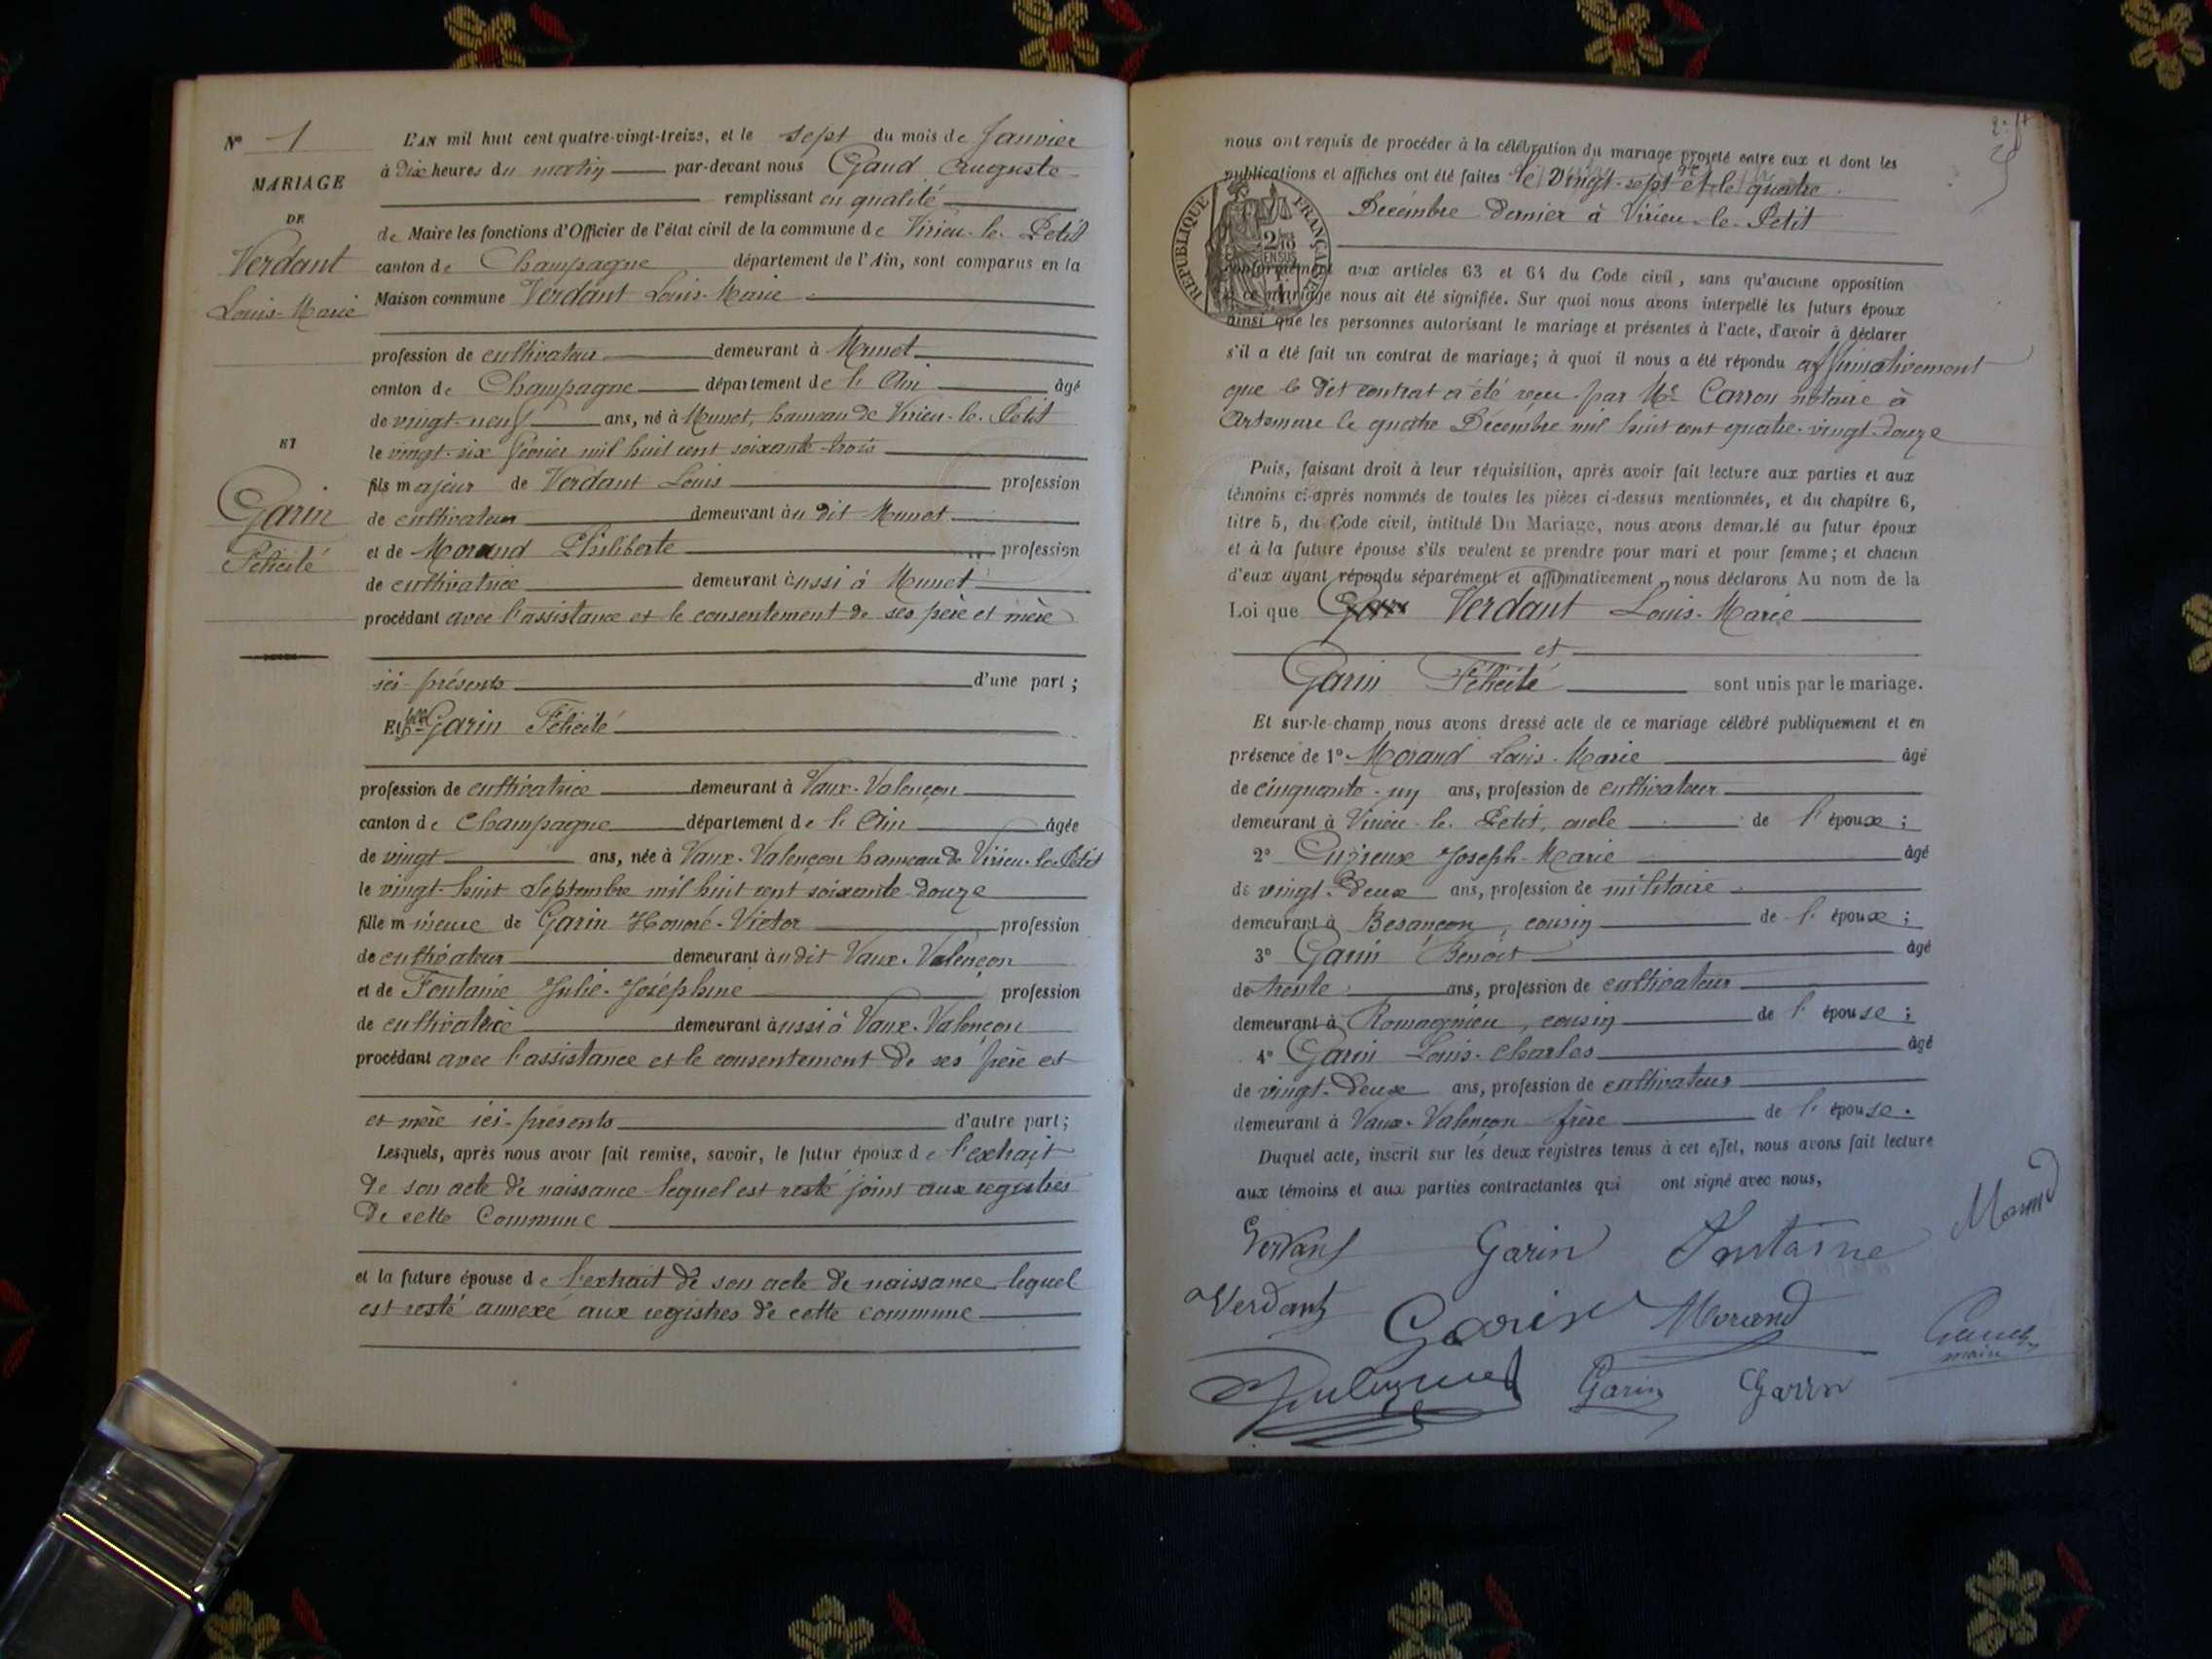 N° 1
MARIAGE
DE
Verdant
Louis-Marie
ET
Garin
Félicité
L'AN mil huit cent quatre-vingt-treize, et le sept du mois de Janvier
à Dix heures du matin par-devant nous Gaud Auguste
remplissant en qualité
de Maire les fonctions d'Officier de l'état civil de la commune de Virieu-le-Petit
canton de Champagne département de l'Ain, sont comparus en la
Maison commune Verdant Louis-Marie
profession de cultivateur demeurant à Munet
canton de Champagne département de l'Ain âgé
de vingt-neuf ans, né à Munet, hameau de Virieu-le-Petit
le vingt-six février mil huit cent soixante-trois
fils majeur de Verdant Louis profession
de cultivateur demeurant àu dit Munet
et de Morand Philiberte profession
de cultivatrice demeurant àussi à Munet
procédant avec l'assistance et le consentement de ses père et mère
ici-présents d'une part ;
Et Garin Félicité
profession de cultivatrice demeurant à Vaux-Valençon
canton de Champagne département de l'Ain âgée
de vingt ans, née à Vaux-Valençon hameau de Virieu-le-Petit
le vingt-huit Septembre mil huit cent soixante-douze
fille mineure de Garin Honoré-Victor profession
de cultivateur demeurant àu dit Vaux-Valençon
et de Fontaine Julie-Joséphine profession
de cultivatrice demeurant àussi à Vaux-Valençon
procédant avec l'assistance et le consentement de ses père et
et mère ici-présents d'autre part ;
Lesquels, après nous avoir fait remise, savoir, le futur époux de l'extrait
de son acte de naissance lequel est resté joint aux registres
de cette Commune
et la future épouse de l'extrait de son acte de naissance lequel
est resté annexé aux registres de cette commune
nous ont requis de procéder à la célébration du mariage projeté entre eux et dont les
publications et affiches ont été faites le Vingt-sept et le quatre
Décembre dernier à Virieu-le-Petit
RÉPUBLIQUE FRANÇAISE
conformément aux articles 63 et 64 du Code civil, sans qu'aucune opposition
à ce mariage nous ait été signifiée. Sur quoi nous avons interpellé les futurs époux
ainsi que les personnes autorisant le mariage et présentes à l'acte, d'avoir à déclarer
s'il a été fait un contrat de mariage ; à quoi il nous a été répondu affirmativement
que le dit contrat a été reçu par Me Carron notaire à
Artemare le quatre Décembre mil huit cent quatre-vingt-douze
Puis, faisant droit à leur réquisition, après avoir fait lecture aux parties et aux
témoins ci-après nommés de toutes les pièces ci-dessus mentionnées, et du chapitre 6,
titre 5, du Code civil, intitulé Du Mariage, nous avons demandé au futur époux
et à la future épouse s'ils veulent se prendre pour mari et pour femme ; et chacun
d'eux ayant répondu séparément et affirmativement, nous déclarons Au nom de la
Loi que Verdant Louis-Marie
et
Garin Félicité sont unis par le mariage.
Et sur-le-champ nous avons dressé acte de ce mariage célébré publiquement et en
présence de 1° Morand Louis-Marie âgé
de cinquante-un ans, profession de cultivateur
demeurant à Virieu-le-Petit, oncle de l'époux ;
2° Joseph-Marie âgé
de vingt-deux ans, profession de militaire
demeurant à Besançon, cousin de l'époux ;
3° Garin Benoît âgé
de trente ans, profession de cultivateur
demeurant à Romagnieu, cousin de l'épouse ;
4° Garin Louis-Charles âgé
de vingt-deux ans, profession de cultivateur
demeurant à Vaux-Valençon frère de l'épouse.
Duquel acte, inscrit sur les deux registres tenus à cet effet, nous avons fait lecture
aux témoins et aux parties contractantes qui ont signé avec nous,
Verdant Garin Fontaine Morand
Verdant Garin Morand Gaud
maire
Garin Garin